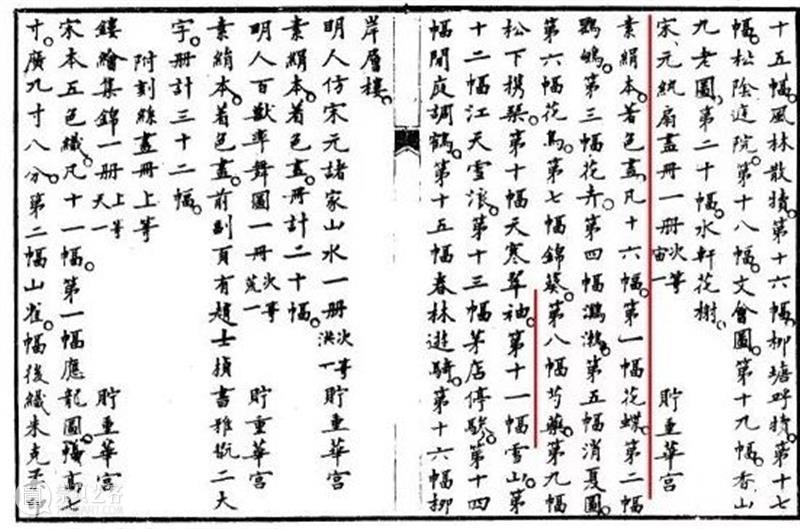 十五幅。風林散犢。第十六幅。柳塘呼犢。第十七
幅。松陰庭院。第十八幅。文會圖。第十九幅。香山
九老圖。第二十幅。水軒花榭。
宋元紈扇畫冊一冊 次等 宙一 貯重華宮
素絹本。着色畫。凡十六幅。第一幅花蝶。第二幅
第三幅花卉。第四幅第五幅消夏圖。
第六幅花鳥。第七幅錦葵。第八幅芍藥。第九幅
松下携琹。第十幅天寒翠袖。第十一幅雪山。第
十二幅江天雪浪。第十三幅茅店停驂。第十四
幅閒庭調鶴。第十五幅春林遊騎。第十六幅柳
岸層樓。
明人仿宋元諸家山水一冊 次等 洪一 貯重華宮
素絹本。着色畫。冊計二十幅。
明人百獸率舞圖一冊 次等 荒一 貯重華宮
素絹本。着色畫。前副頁有趙士楨書雅翫二大
字。冊計三十二幅。
附刻絲畫冊上等
鏤繪集錦一冊 上等 天一 貯重華宮
宋本五色織。凡十一幅。第一幅應龍圖。幅高七
寸。廣九寸八分。第二幅山雀。幅後織朱克柔